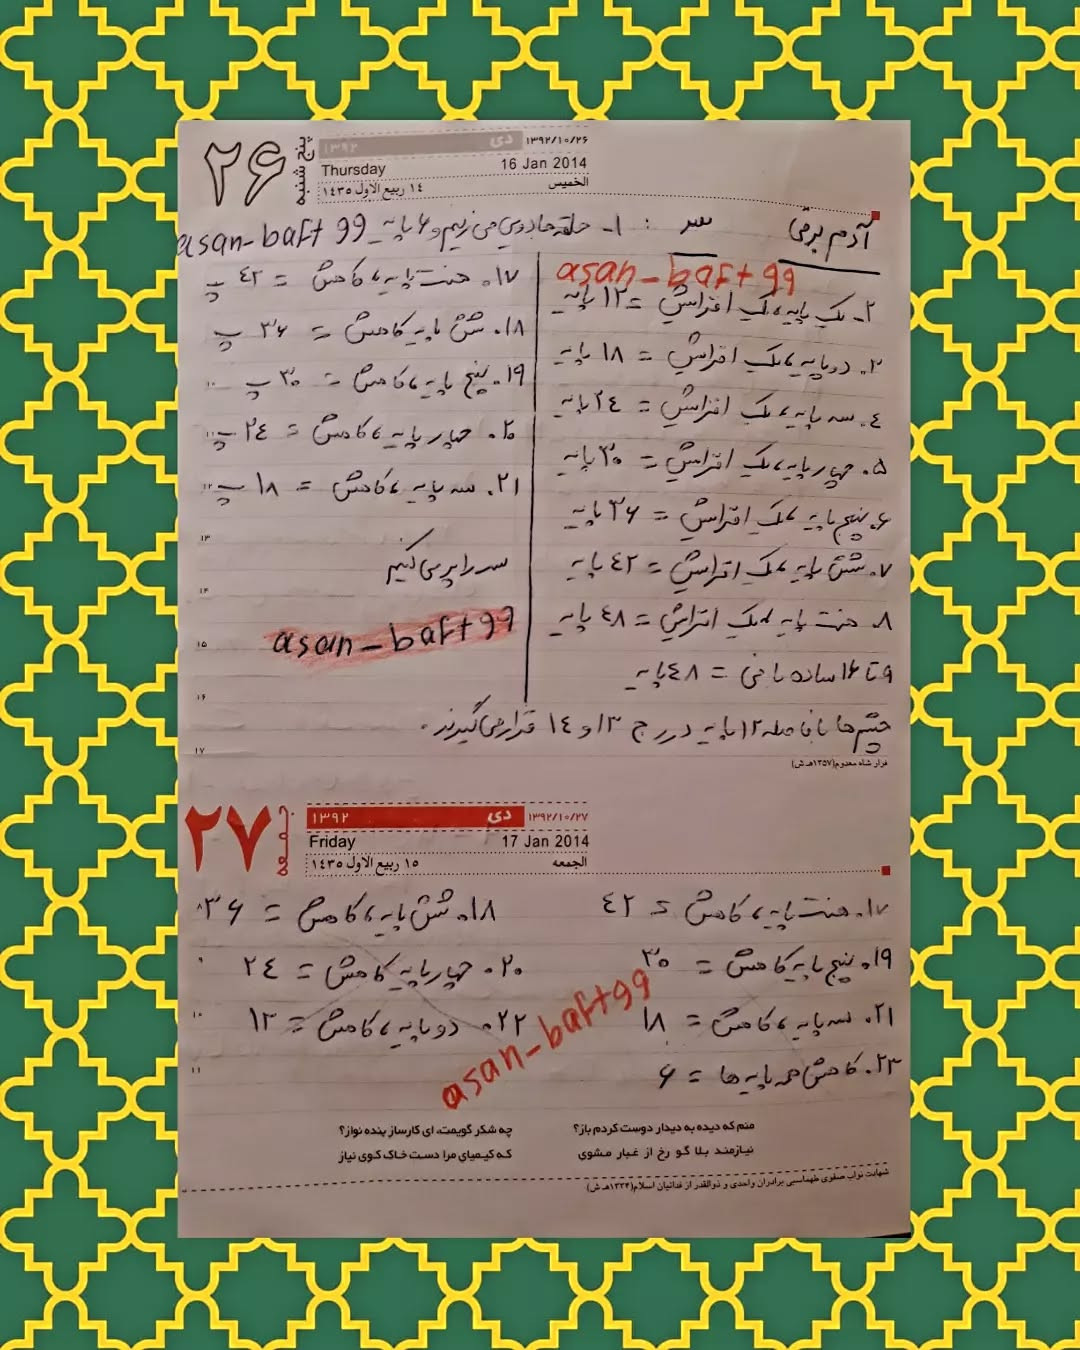 ۲۶
پنج شنبه
۱۳۹۲ دی ۱۳۹۲/۱۰/۲۶
Thursday 16 Jan 2014
۱۴ ربیع الاول ۱۴۳۵ الخمیس
آدم برفی سر : ۱- حلقه جادویی می زنیم و ۶ پایه asan-baft 99
asan_baft 99
۲- یک پایه، یک افزایش = ۱۲ پایه
۳. دو پایه، یک افزایش = ۱۸ پایه
۴. سه پایه، یک افزایش = ۲۴ پایه
۵. چهار پایه، یک افزایش = ۳۰ پایه
۶. پنج پایه یک افزایش = ۳۶ پایه
۷. شش پایه، یک افزایش = ۴۲ پایه
۸. هفت پایه یک افزایش = ۴۸ پایه
۹ تا ۱۶ ساده بافی = ۴۸ پایه
۱۷. هفت پایه، کاهش = ۴۲ پ
۱۸. شش پایه کاهش = ۳۶ پ
۱۹. پنج پایه، کاهش = ۳۰ پ
۲۰. چهار پایه، کاهش = ۲۴ پ
۲۱. سه پایه، کاهش = ۱۸ پ
سر را پر می کنیم
asan_baft 99
چشم ها با فاصله ۱۲ پایه در رج ۱۳ و ۱۴ قرار می گیرند.
فرار شاه معدوم (۱۳۵۷هـ.ش)
۲۷
جمعه
۱۳۹۲ دی ۱۳۹۲/۱۰/۲۷
Friday 17 Jan 2014
۱۵ ربیع الاول ۱۴۳۵ الجمعه
۱۷. هفت پایه، کاهش = ۴۲ ۱۸. شش پایه، کاهش = ۳۶
۱۹. پنج پایه کاهش = ۳۰ ۲۰. چهار پایه کاهش = ۲۴
۲۱. سه پایه، کاهش = ۱۸ ۲۲. دو پایه، کاهش = ۱۲
asan_baft 99
۲۳. کاهش همه پایه ها = ۶
منم که دیده به دیدار دوست کردم باز؟ چه شکر گویمت، ای کارساز بنده نواز؟
نیازمند بلا گو رخ از غبار مشوی که کیمیای مرا دست خاک کوی نیاز
شهادت نواب صفوی طهماسبی برادران واحدی و ذوالقدر از فدائیان اسلام (۱۳۳۴هـ.ش)